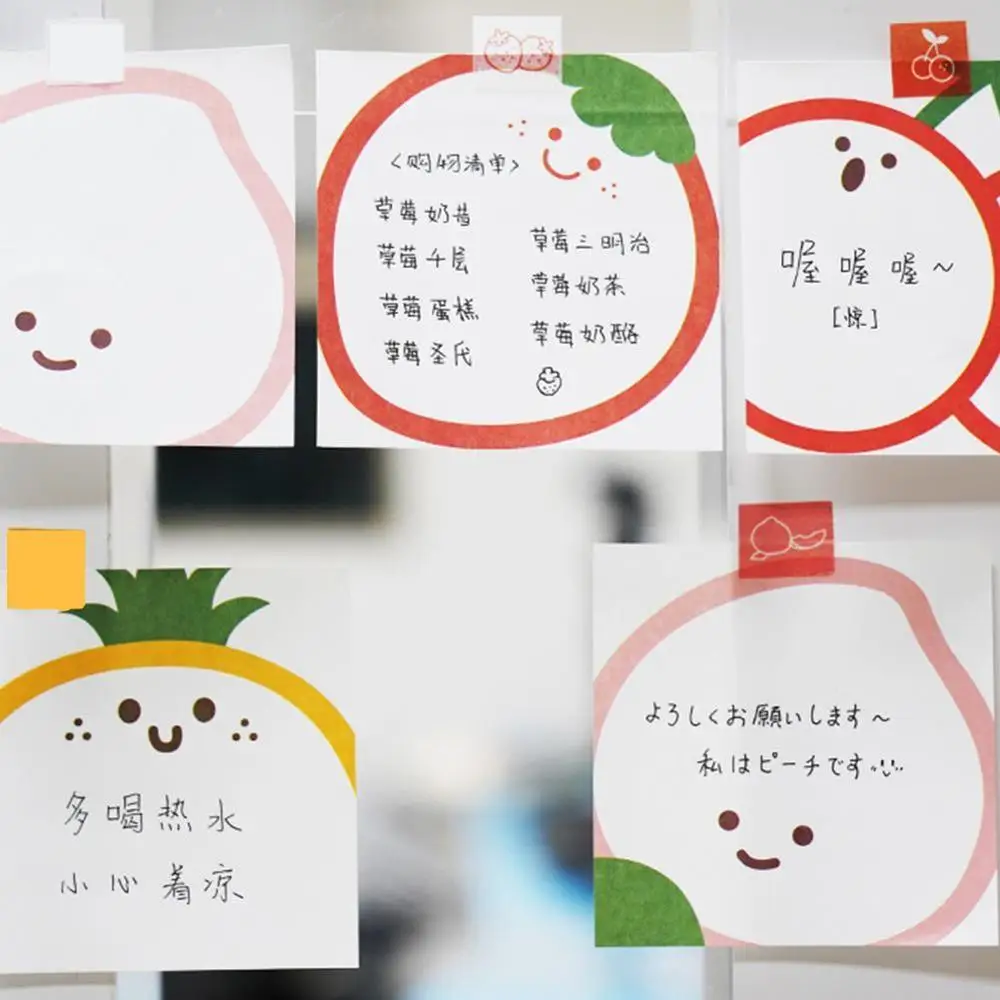 <购物清单>
草莓奶昔
草莓千层
草莓蛋糕
草莓圣代
草莓三明治
草莓奶茶
草莓奶酪
喔 喔 喔~
[惊]
多喝热水
小心着凉
よろしくお願いします~
私はピーチです